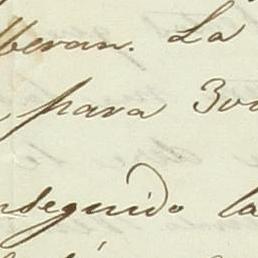 beran. La
para 300
nseguido la